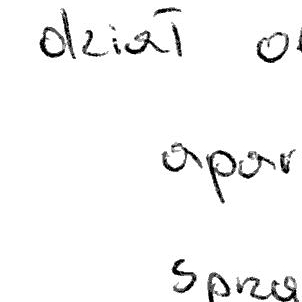 dział o
apar
sprza